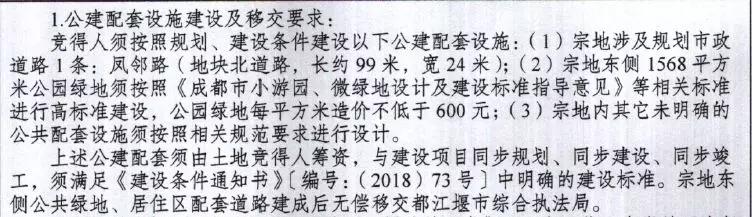 1.公建配套设施建设及移交要求：
竞得人须按照规划、建设条件建设以下公建配套设施：（1）宗地涉及规划市政
道路1条：凤邻路（地块北道路，长约99米，宽24米）；（2）宗地东侧1568平方
米公园绿地须按照《成都市小游园、微绿地设计及建设标准指导意见》等相关标准
进行高标准建设，公园绿地每平方米造价不低于600元；（3）宗地内其它未明确的
公共配套设施须按照相关规范要求进行设计。
上述公建配套须由土地竞得人筹资，与建设项目同步规划、同步建设、同步竣
工，须满足《建设条件通知书》［编号：（2018）73号］中明确的建设标准。宗地东
侧公共绿地、居住区配套道路建成后无偿移交都江堰市综合执法局。